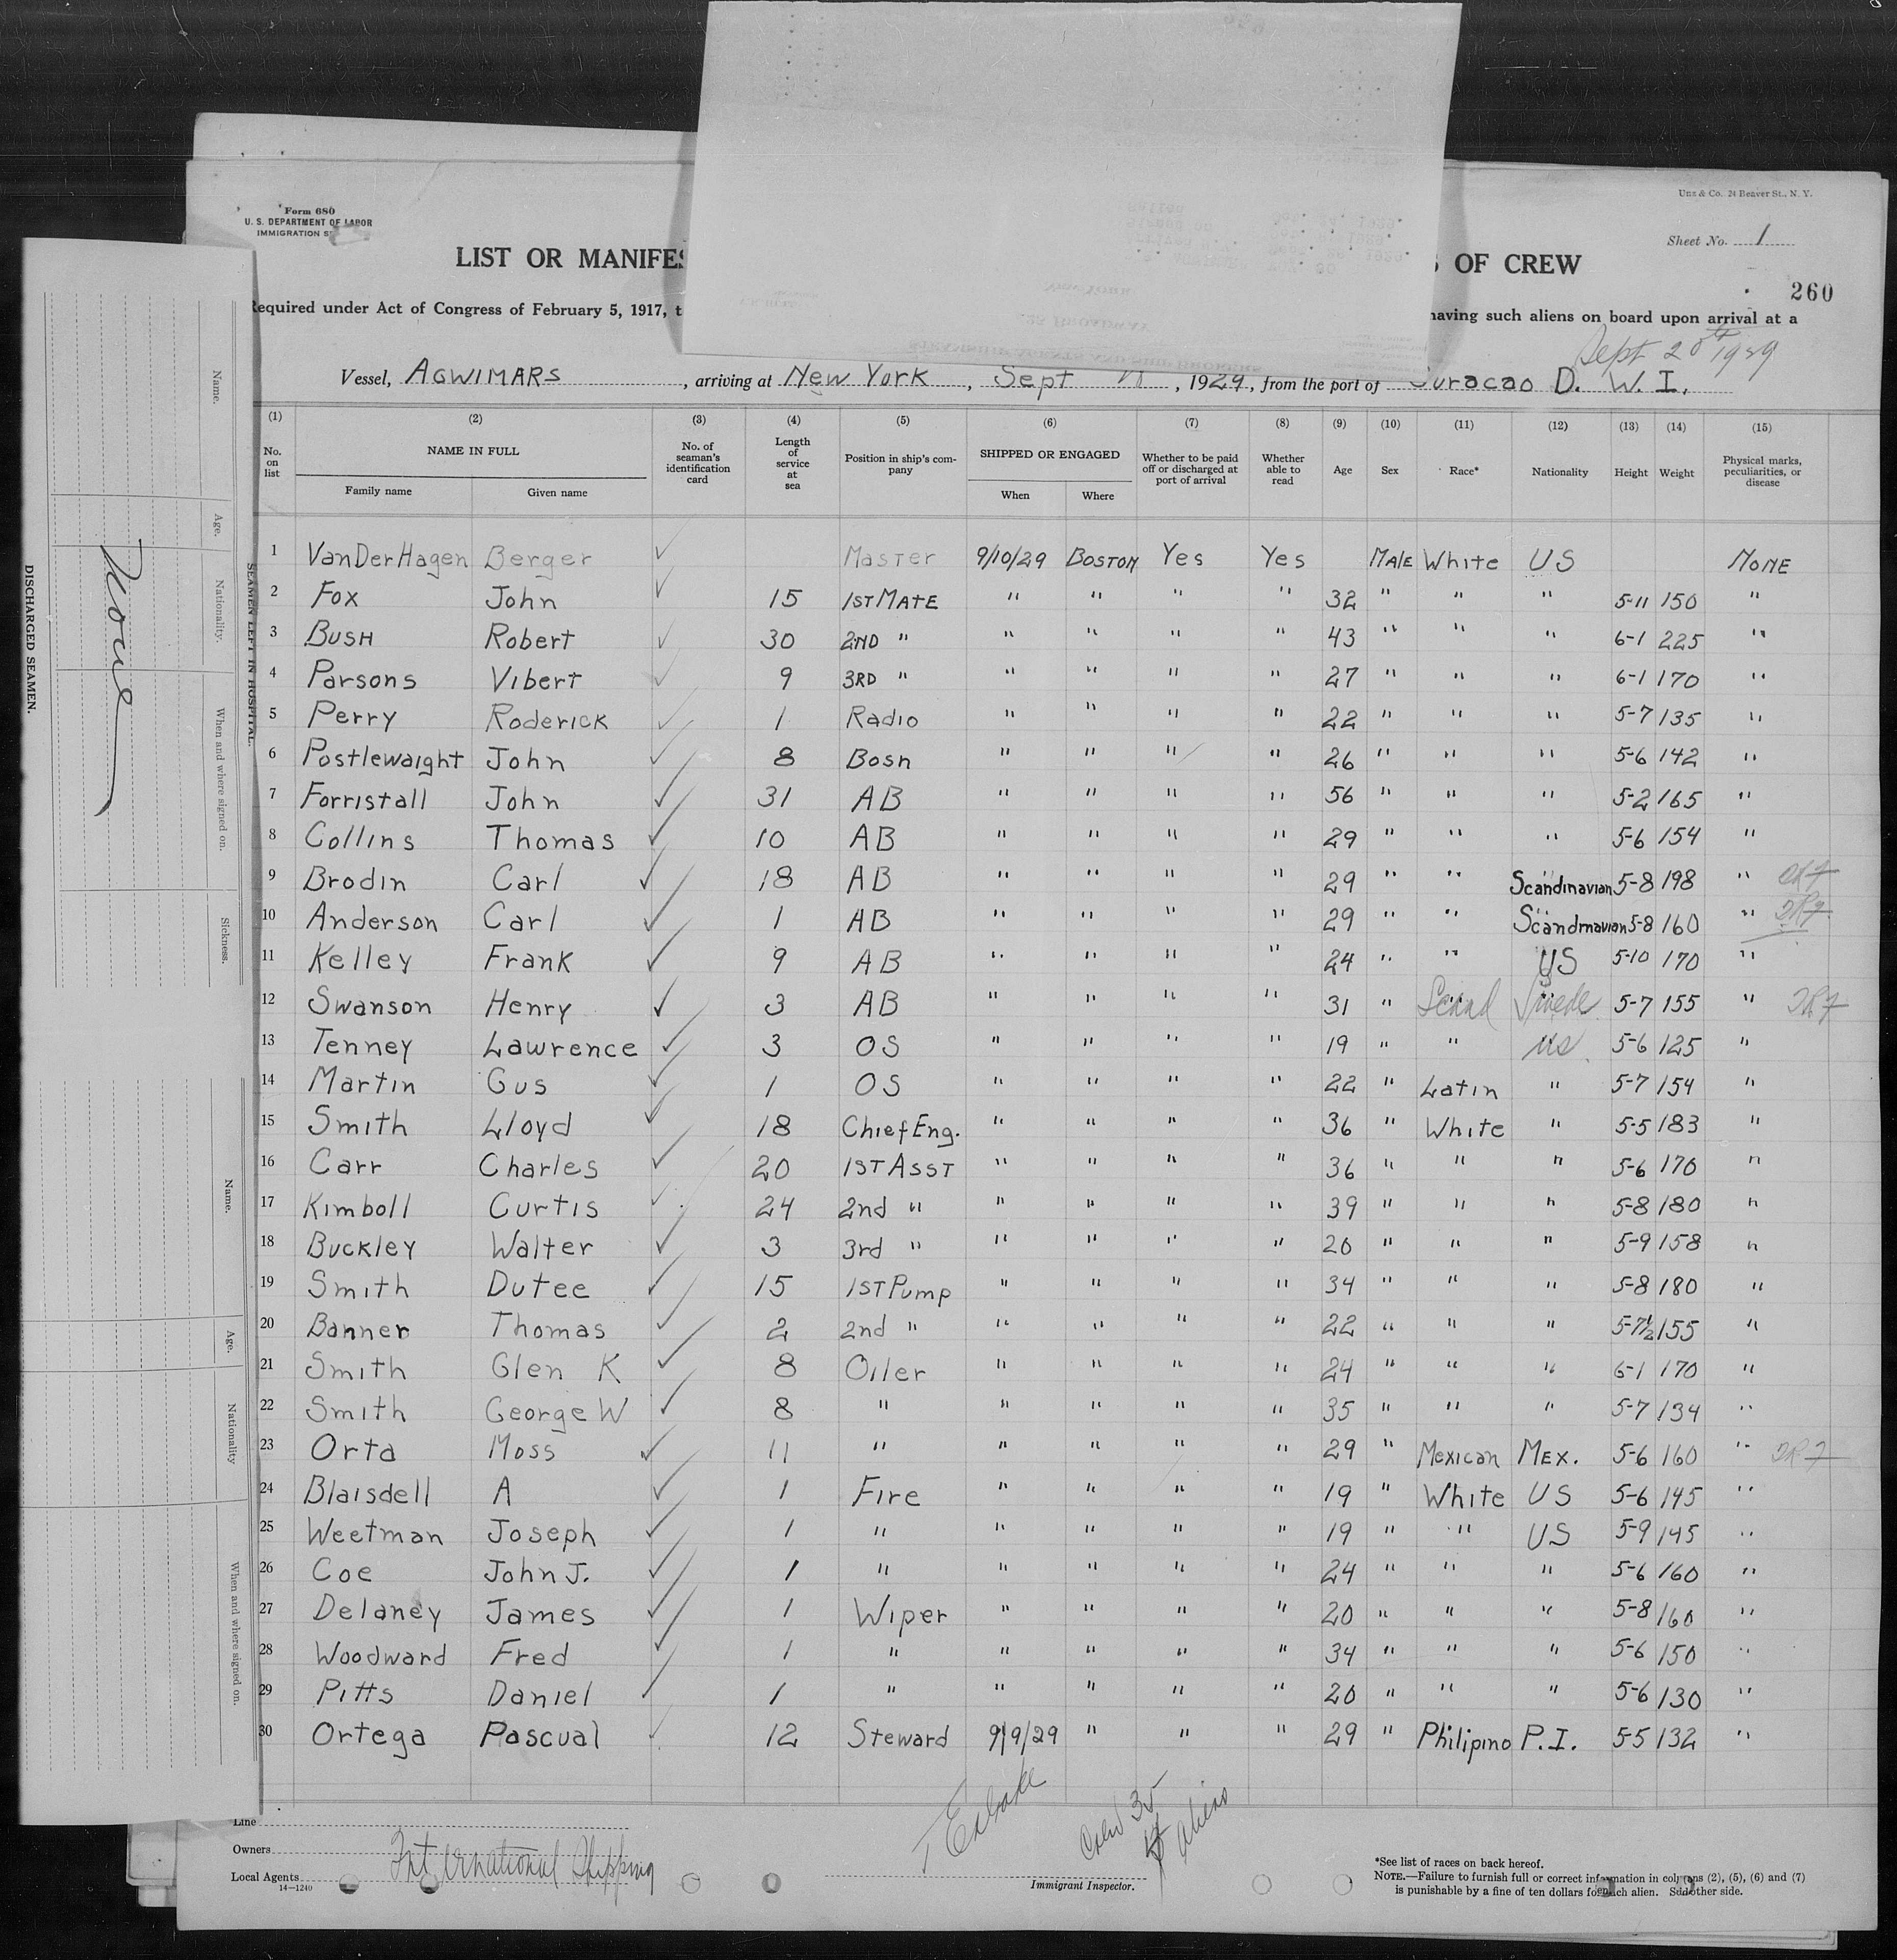 Form 680
U. S. DEPARTMENT OF LABOR
IMMIGRATION S
Unz & Co. 24 Beaver St., N. Y.
Sheet No. 1
LIST OR MANIFES OF CREW
260
Required under Act of Congress of February 5, 1917, t having such aliens on board upon arrival at a
Sept 20th 1929
Vessel, AGWIMARS, arriving at New York, Sept, 1929, from the port of Curacao D. W. I.
(1) (2) (3) (4) (5) (6) (7) (8) (9) (10) (11) (12) (13) (14) (15)
No. on list NAME IN FULL Family name Given name No. of seaman's identification card Length of service at sea Position in ship's company SHIPPED OR ENGAGED When Where Whether to be paid off or discharged at port of arrival Whether able to read Age Sex Race* Nationality Height Weight Physical marks, peculiarities, or disease
1 VanDerHagen Berger ✓ Master 9/10/29 BOSTON Yes Yes MAlE White US NONE
2 Fox John ✓ 15 1ST MATE " " " " 32 " " " 5-11 150 "
3 BUSH Robert ✓ 30 2ND " " " " " 43 " " " 6-1 225 "
4 Parsons Vibert ✓ 9 3RD " " " " " 27 " " " 6-1 170 "
5 Perry Roderick ✓ 1 Radio " " " " 22 " " " 5-7 135 "
6 Postlewaight John ✓ 8 Bosn " " " " 26 " " " 5-6 142 "
7 Forristall John ✓ 31 AB " " " " 56 " " " 5-2 165 "
8 Collins Thomas ✓ 10 AB " " " " 29 " " " 5-6 154 "
9 Brodin Carl ✓ 18 AB " " " " 29 " " Scandinavian 5-8 198 "
10 Anderson Carl ✓ 1 AB " " " " 29 " " Scandinavian 5-8 160 "
11 Kelley Frank ✓ 9 AB " " " " 24 " " US 5-10 170 "
12 Swanson Henry ✓ 3 AB " " " " 31 " Scand Swede 5-7 155 "
13 Tenney Lawrence ✓ 3 OS " " " " 19 " " US 5-6 125 "
14 Martin Gus ✓ 1 OS " " " " 22 " Latin " 5-7 154 "
15 Smith Lloyd ✓ 18 Chief Eng. " " " " 36 " White " 5-5 183 "
16 Carr Charles ✓ 20 1ST ASST " " " " 36 " " " 5-6 170 "
17 Kimboll Curtis ✓ 24 2nd " " " " " 39 " " " 5-8 180 "
18 Buckley Walter ✓ 3 3rd " " " " " 20 " " " 5-9 158 "
19 Smith Dutee ✓ 15 1ST Pump " " " " 34 " " " 5-8 180 "
20 Banner Thomas ✓ 2 2nd " " " " " 22 " " " 5-7½ 155 "
21 Smith Glen K ✓ 8 Oiler " " " " 24 " " " 6-1 170 "
22 Smith George W ✓ 8 " " " " " 35 " " " 5-7 134 "
23 Orta Moss ✓ 11 " " " " " 29 " Mexican MEX. 5-6 160 "
24 Blaisdell A ✓ 1 Fire " " " " 19 " White US 5-6 145 "
25 Weetman Joseph ✓ 1 " " " " " 19 " " US 5-9 145 "
26 Coe John J. ✓ 1 " " " " " 24 " " " 5-6 160 "
27 Delaney James ✓ 1 Wiper " " " " 20 " " " 5-8 160 "
28 Woodward Fred ✓ 1 " " " " " 34 " " " 5-6 150 "
29 Pitts Daniel ✓ 1 " " " " " 20 " " " 5-6 130 "
30 Ortega Pascual ✓ 12 Steward 9/9/29 " " " 29 " Philipino P.I. 5-5 132 "
Crew 35
aliens
Line
Owners
Local Agents International Shipping
14—1240
Immigrant Inspector.
*See list of races on back hereof.
NOTE.—Failure to furnish full or correct information in columns (2), (5), (6) and (7)
is punishable by a fine of ten dollars for each alien. See other side.
DISCHARGED SEAMEN.
None
Name. Age. Nationality. When and where signed on. Sickness.
SEAMEN LEFT IN HOSPITAL.
Name. Age. Nationality When and where signed on.